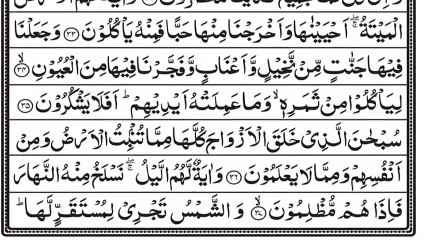 الْمَيْتَةُ ۖۚ اَحْيَيْنٰهَا وَاَخْرَجْنَا مِنْهَا حَبًّا فَمِنْهُ يَاْكُلُوْنَ ﴿۳۳﴾ وَجَعَلْنَا
فِيْهَا جَنّٰتٍ مِّنْ نَّخِيْلٍ وَّاَعْنَابٍ وَّفَجَّرْنَا فِيْهَا مِنَ الْعُيُوْنِ ﴿۳۴﴾ۙ
لِيَاْكُلُوْا مِنْ ثَمَرِهٖ ۙ وَمَا عَمِلَتْهُ اَيْدِيْهِمْ ؕ اَفَلَا يَشْكُرُوْنَ ﴿۳۵﴾
سُبْحٰنَ الَّذِيْ خَلَقَ الْاَزْوَاجَ كُلَّهَا مِمَّا تُنْۢبِتُ الْاَرْضُ وَمِنْ
اَنْفُسِهِمْ وَمِمَّا لَا يَعْلَمُوْنَ ﴿۳۶﴾ وَاٰيَةٌ لَّهُمُ الَّيْلُ ۖۚ نَسْلَخُ مِنْهُ النَّهَارَ
فَاِذَا هُمْ مُّظْلِمُوْنَ ﴿۳۷﴾ۙ وَالشَّمْسُ تَجْرِيْ لِمُسْتَقَرٍّ لَّهَا ؕ